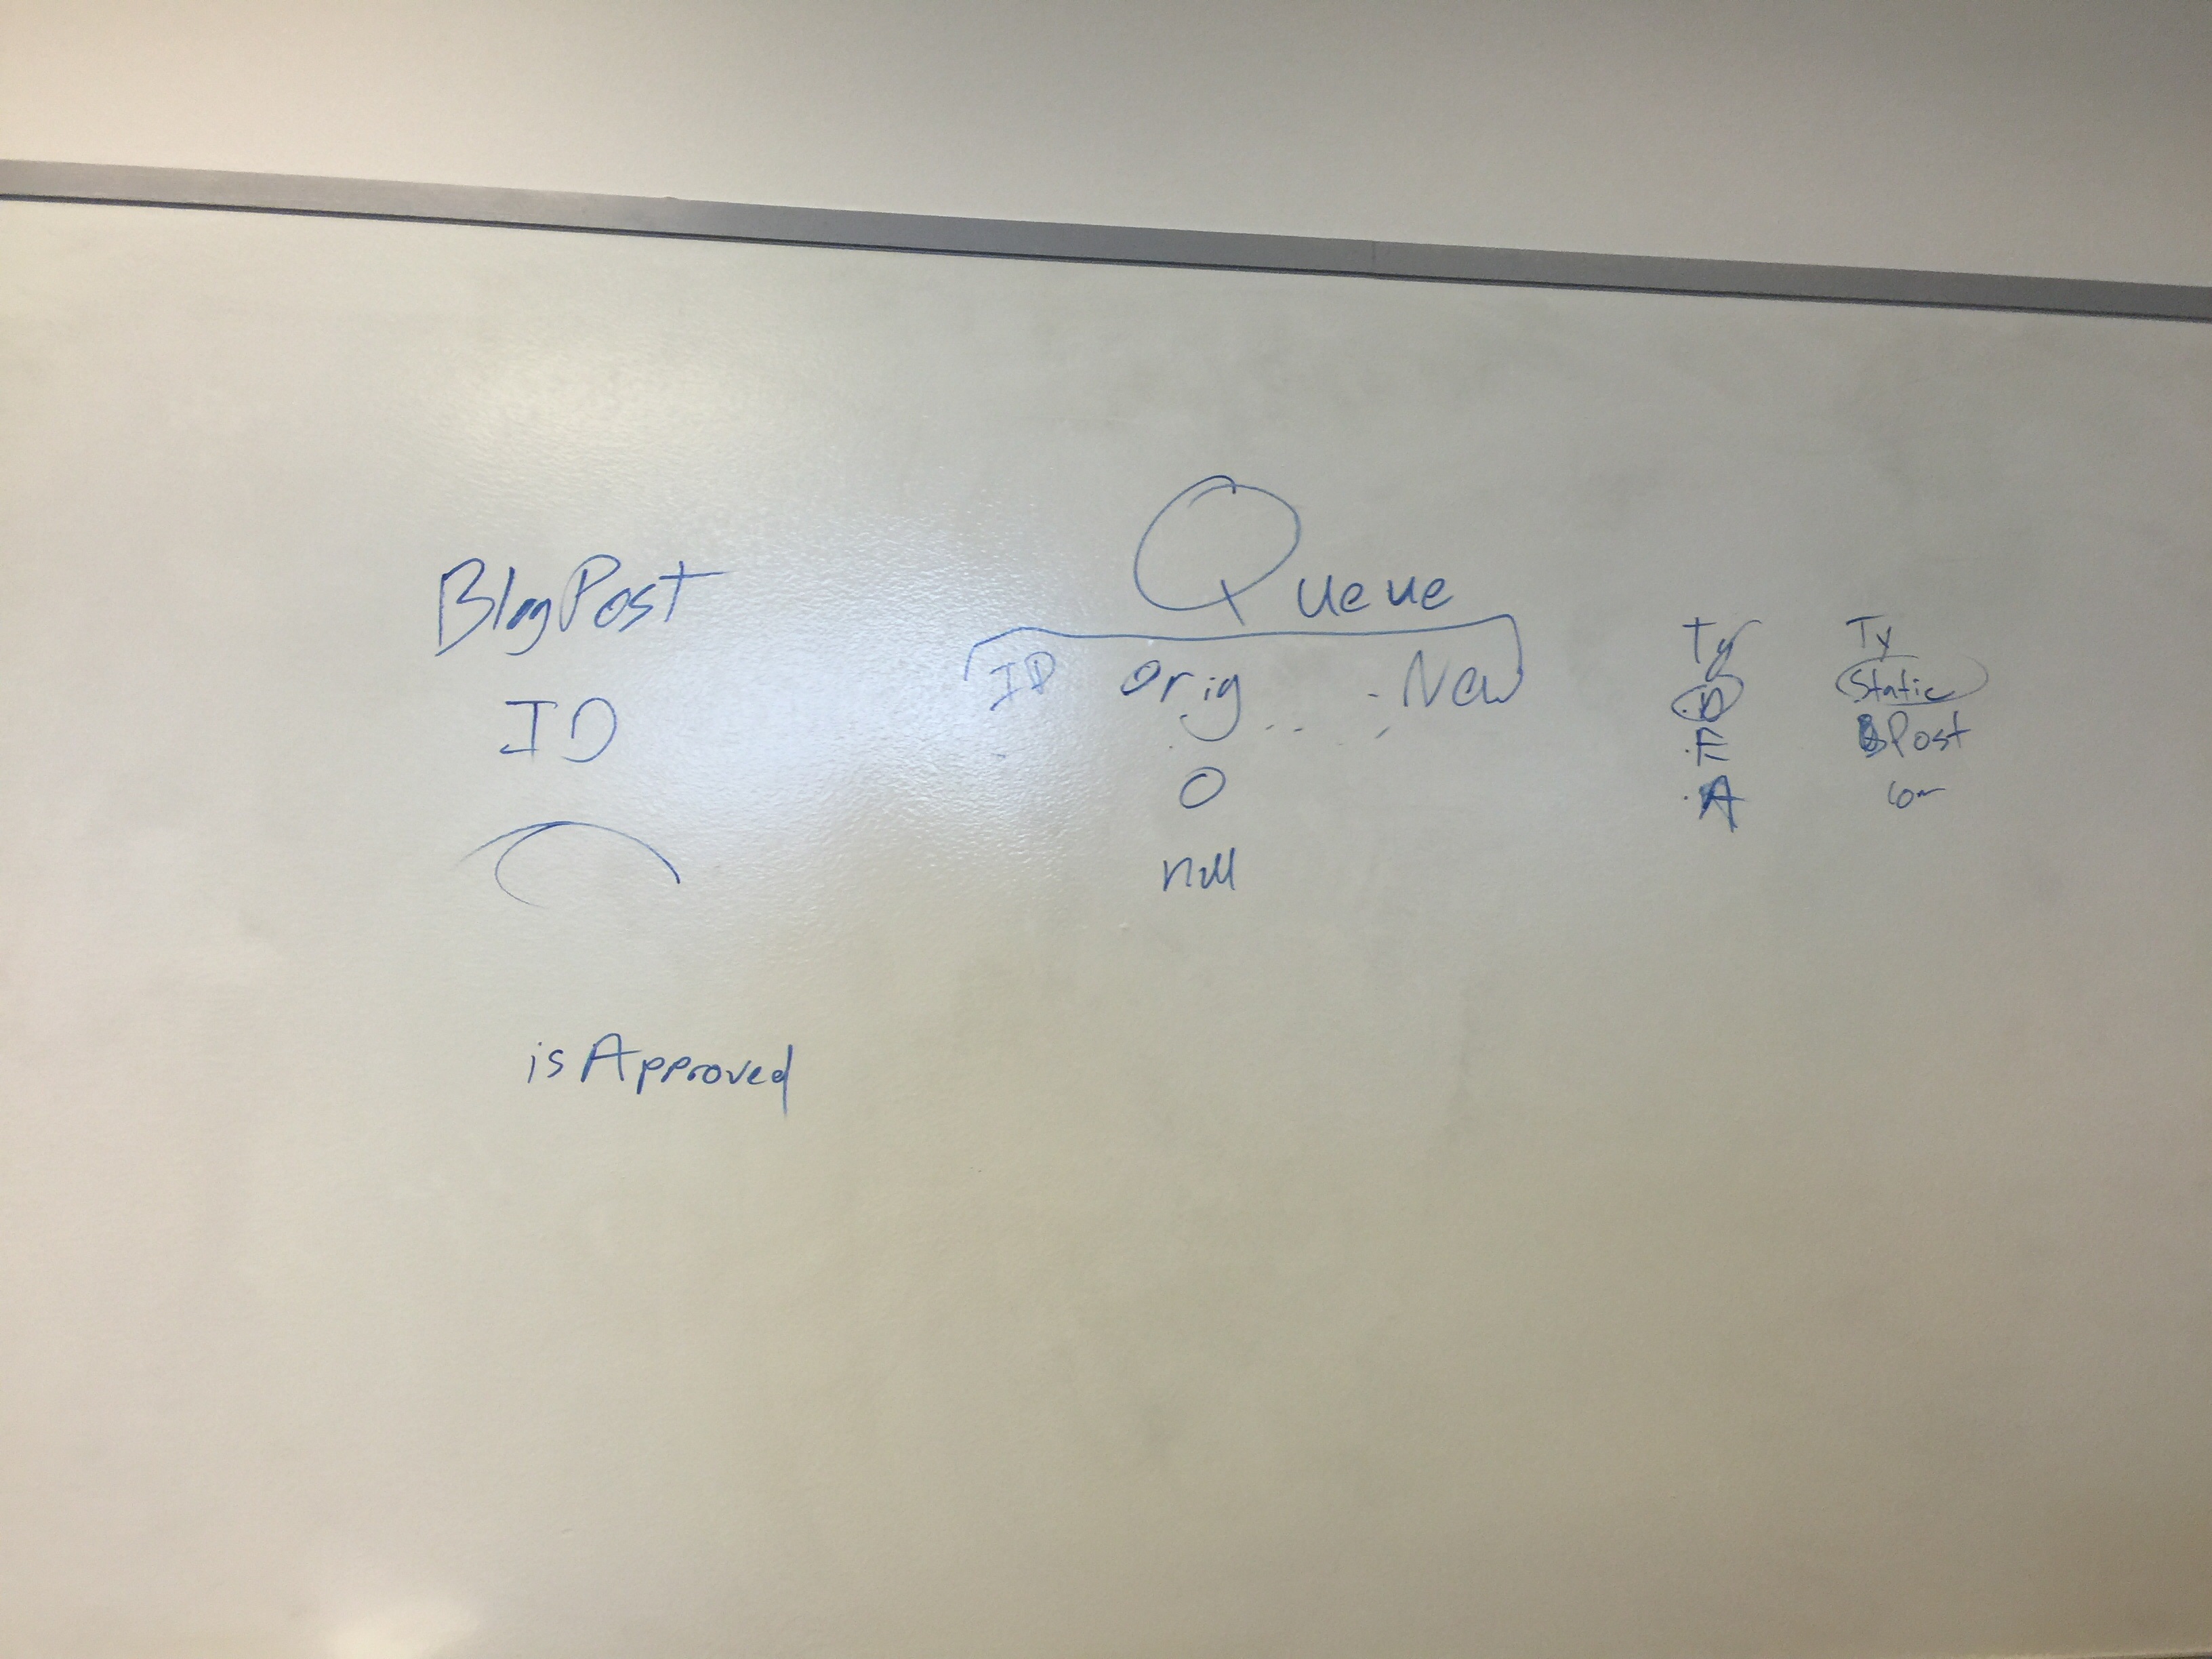 BlogPost
ID
isApproved
Queue
ID Orig .... - New
0
null
Ty
D
E
A
Ty
Static
BPost
com